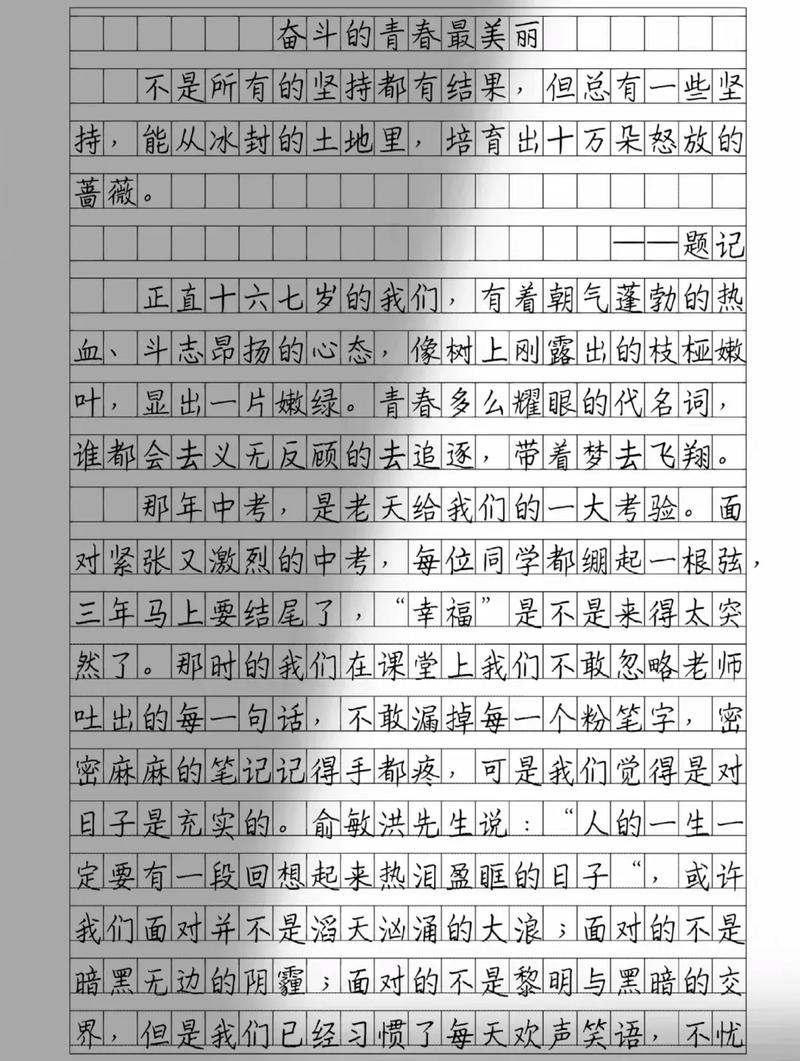 奋斗的青春最美丽
不是所有的坚持都有结果，但总有一些坚
持，能从冰封的土地里，培育出十万朵怒放的
蔷薇。
——题记
正直十六七岁的我们，有着朝气蓬勃的热
血、斗志昂扬的心态，像树上刚露出的枝桠嫩
叶，显出一片嫩绿。青春多么耀眼的代名词，
谁都会去义无反顾的去追逐，带着梦去飞翔。
那年中考，是老天给我们的一大考验。面
对紧张又激烈的中考，每位同学都绷起一根弦，
三年马上要结尾了，“幸福”是不是来得太突
然了。那时的我们在课堂上我们不敢忽略老师
吐出的每一句话，不敢漏掉每一个粉笔字，密
密麻麻的笔记记得手都疼，可是我们觉得是对
日子是充实的。俞敏洪先生说：“人的一生一
定要有一段回想起来热泪盈眶的日子“，或许
我们面对并不是滔天汹涌的大浪；面对的不是
暗黑无边的阴霾；面对的不是黎明与黑暗的交
界，但是我们已经习惯了每天欢声笑语，不忧